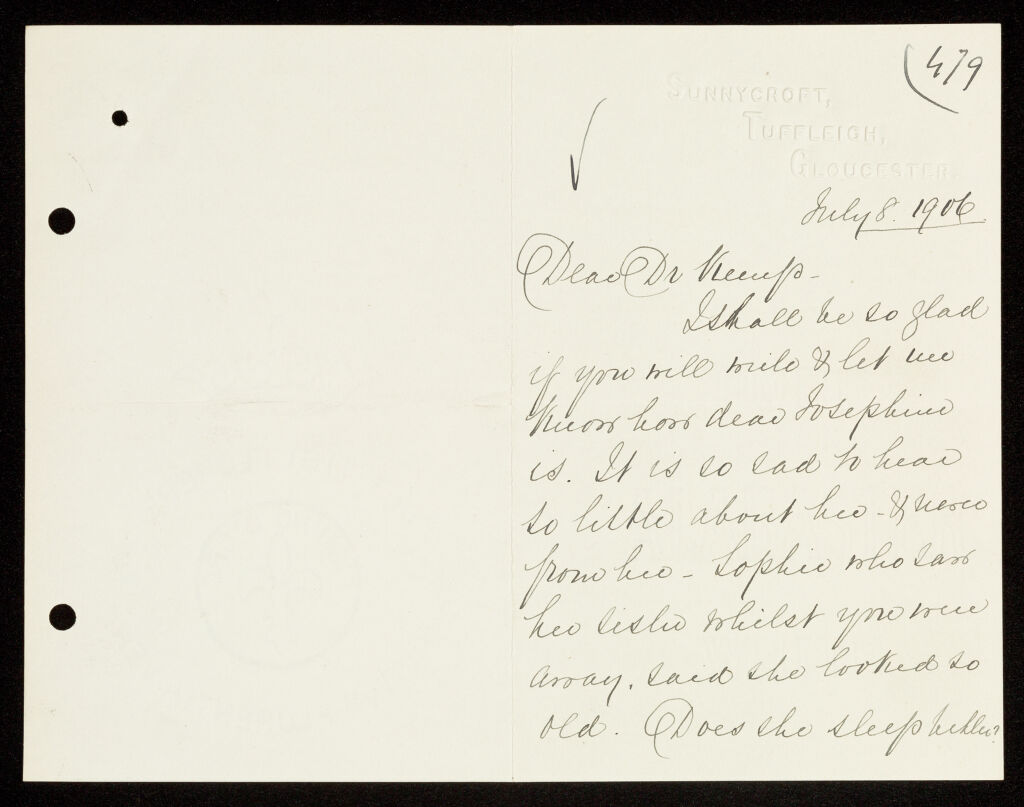 479
SUNNYCROFT,
TUFFLEIGH,
GLOUCESTER.
July 8. 1906
Dear Dr Kemp-
I shall be so glad
if you will write & let me
know how dear Josephine
is. It is so sad to hear
so little about her - & never
from her - Sophie who saw
her sister whilst you were
away, said she looked so
old. Does she sleep better?